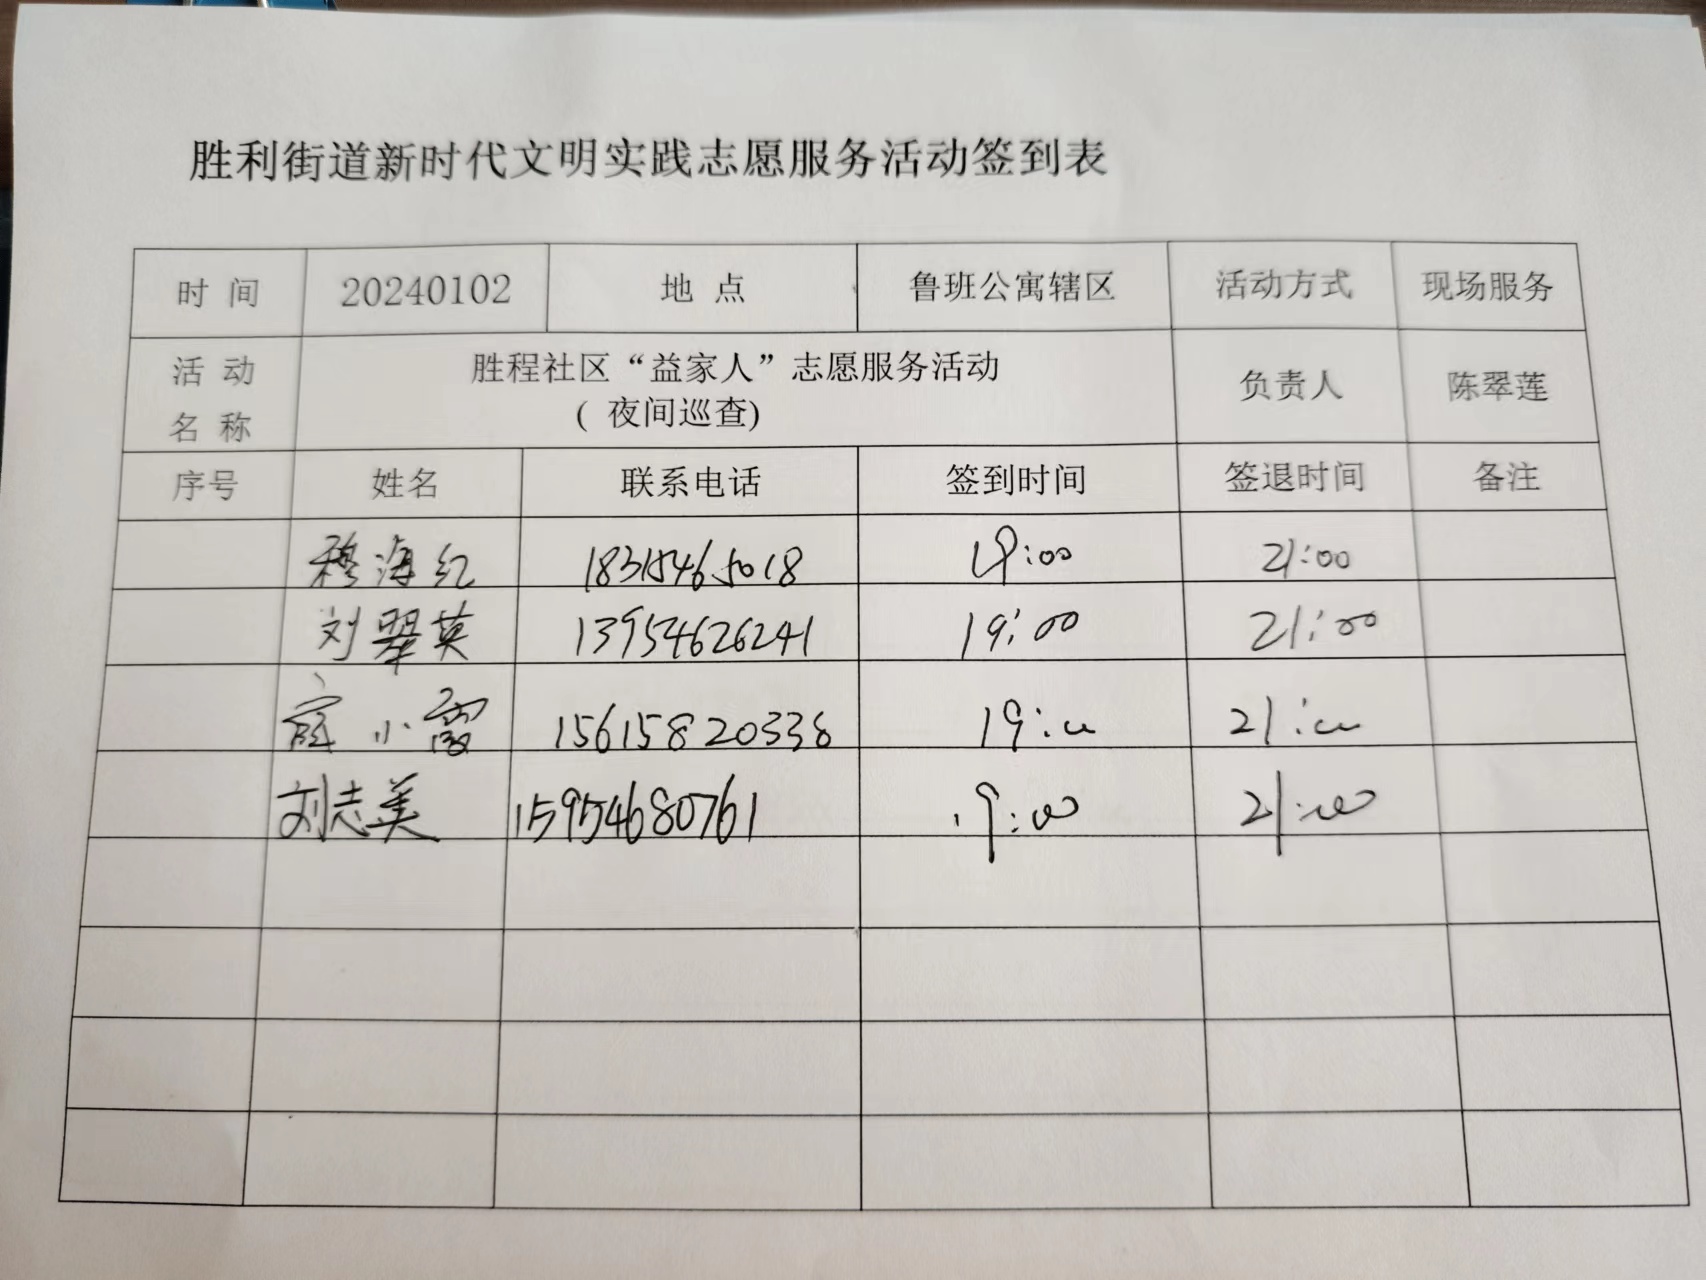 胜利街道新时代文明实践志愿服务活动签到表
时 间 20240102 地 点 鲁班公寓辖区 活动方式 现场服务
活 动 名 称 胜程社区“益家人”志愿服务活动 负责人 陈翠莲
( 夜间巡查)
序号 姓名 联系电话 签到时间 签退时间 备注
穆海红 18315465018 19:00 21:00
刘翠英 13954626241 19:00 21:00
小霞 15615820338 19:00 21:00
刘志美 15954680761 19:00 21:00